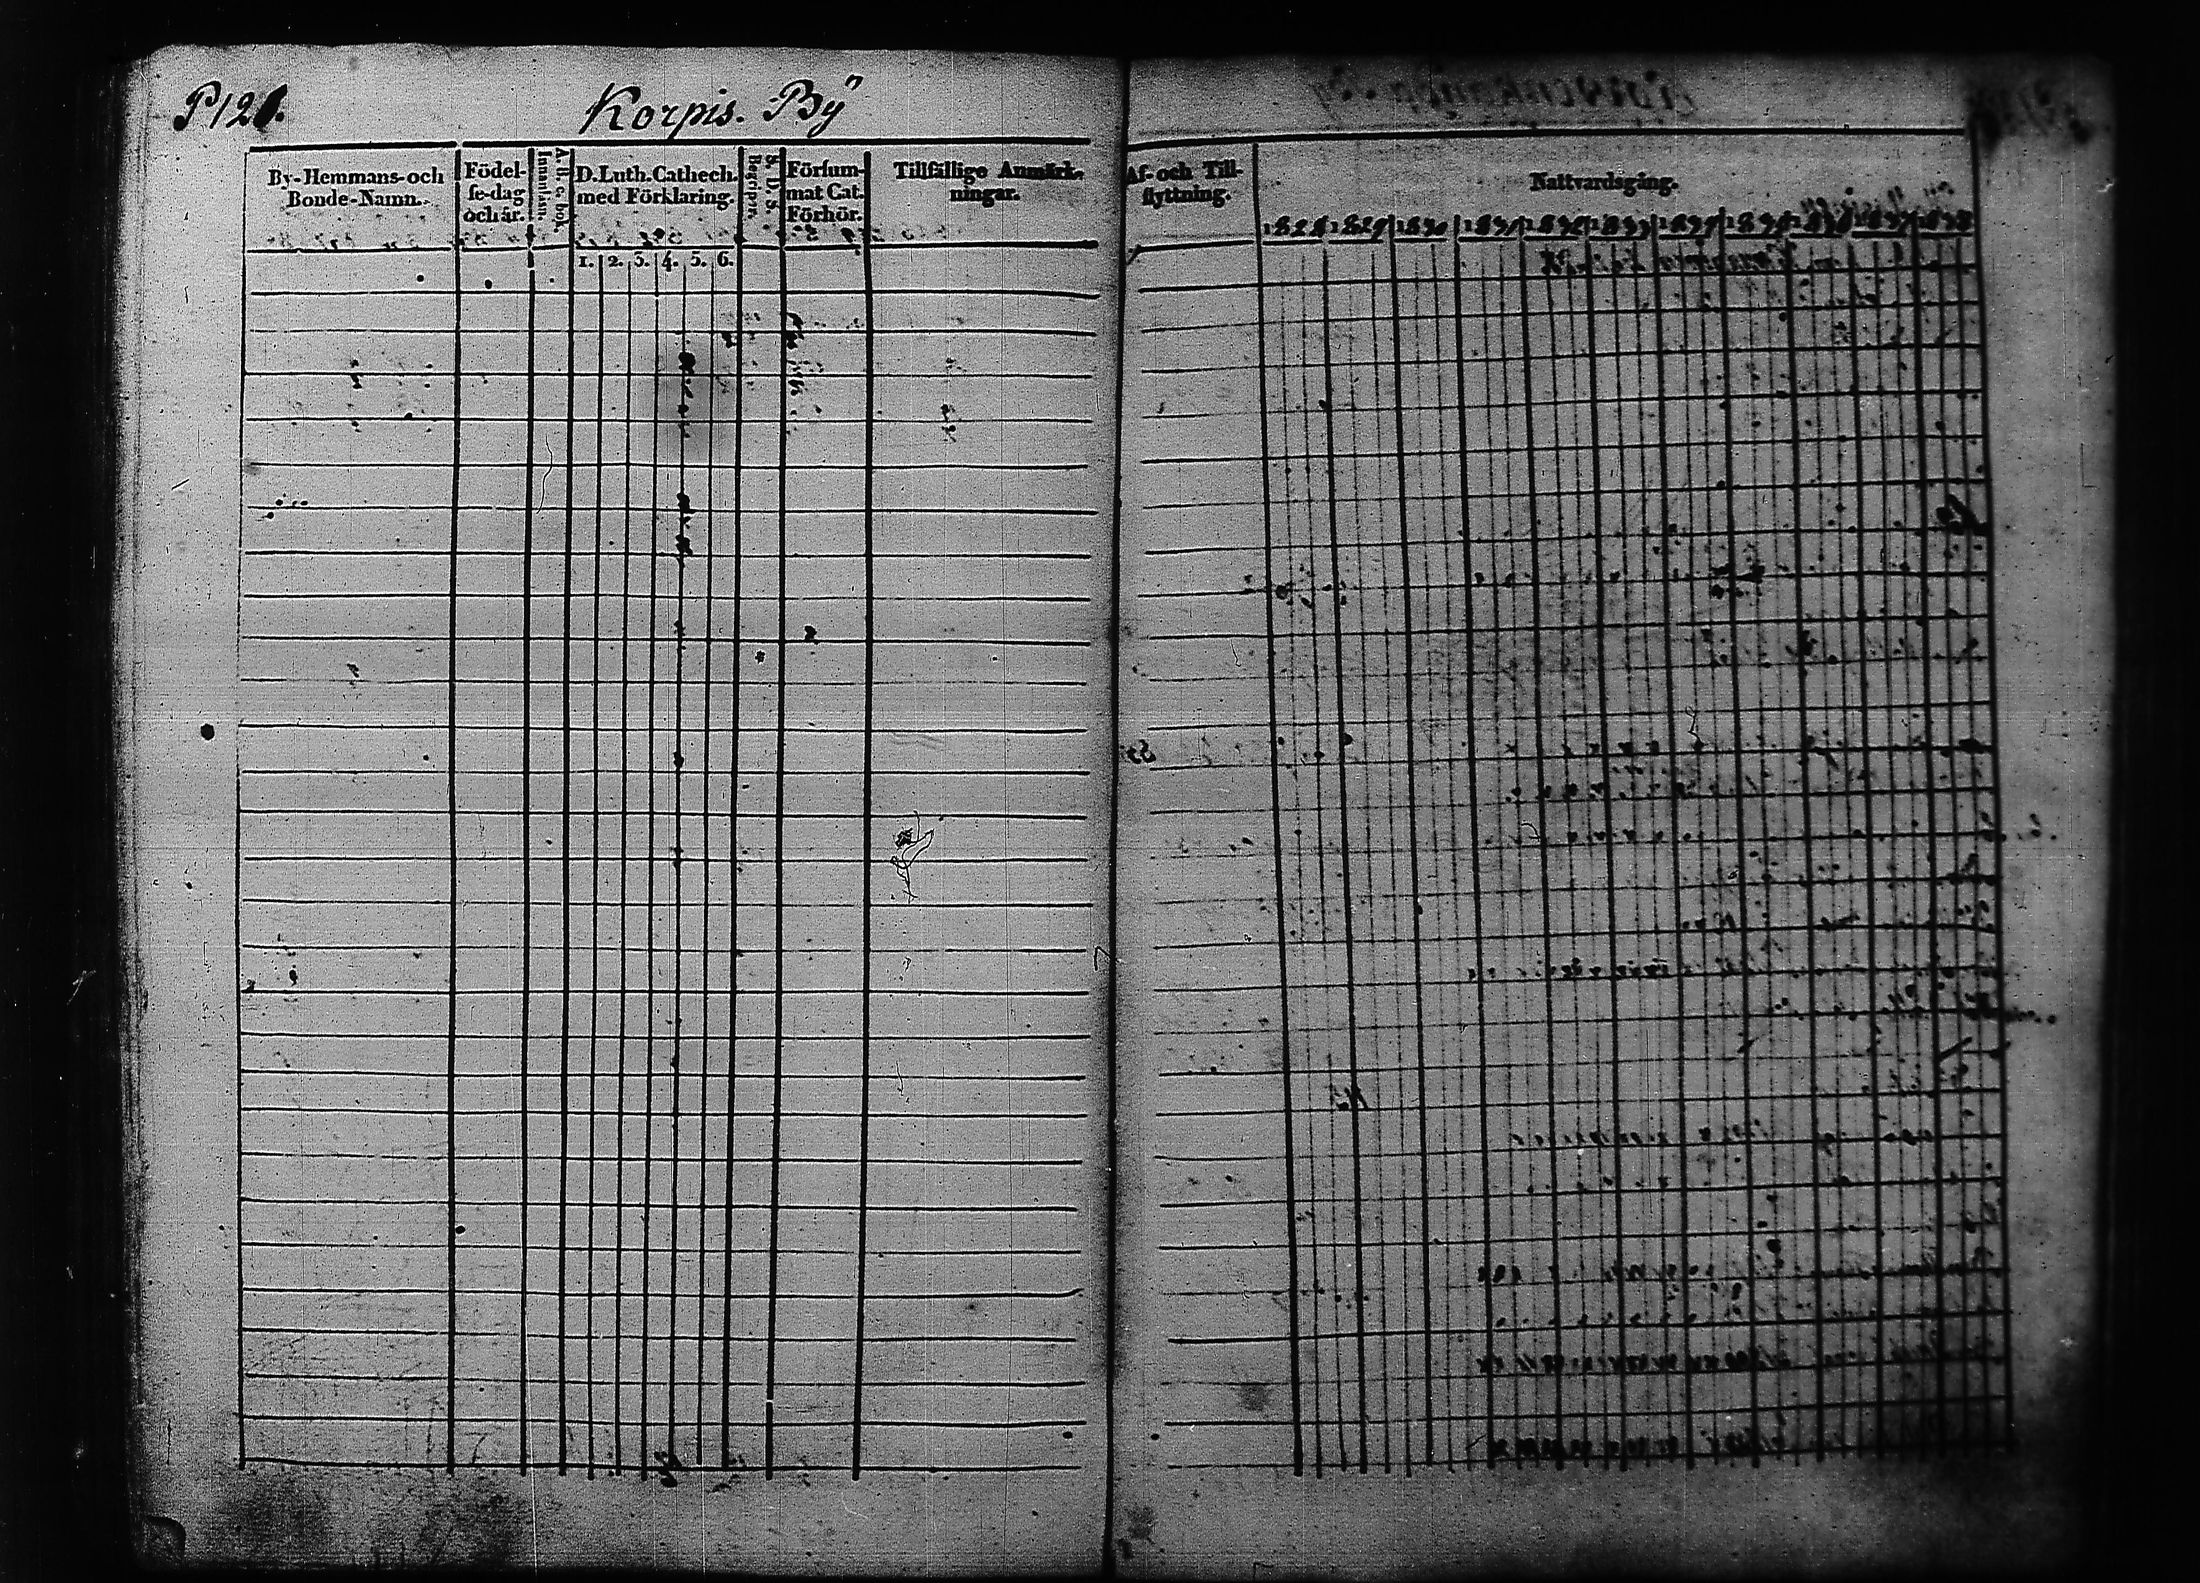 P 121.
Korpis. Bÿ
By-Hemmans-och
Bonde-Namn.
Födel-
se-dag
och år.
Innanläsn.
A. B. C. bok.
D. Luth. Cathech.
med Förklaring.
1. 2. 3. 4. 5. 6.
S. D. S.
Begripr.
Försum-
mat Cat.
Förhör.
Tillfällige Anmärk-
ningar.
Af- och Till-
flyttning.
Nattvardsgång.
1828 1829 1830 1831 1832 1833 1834 1835 1836 1837 1838